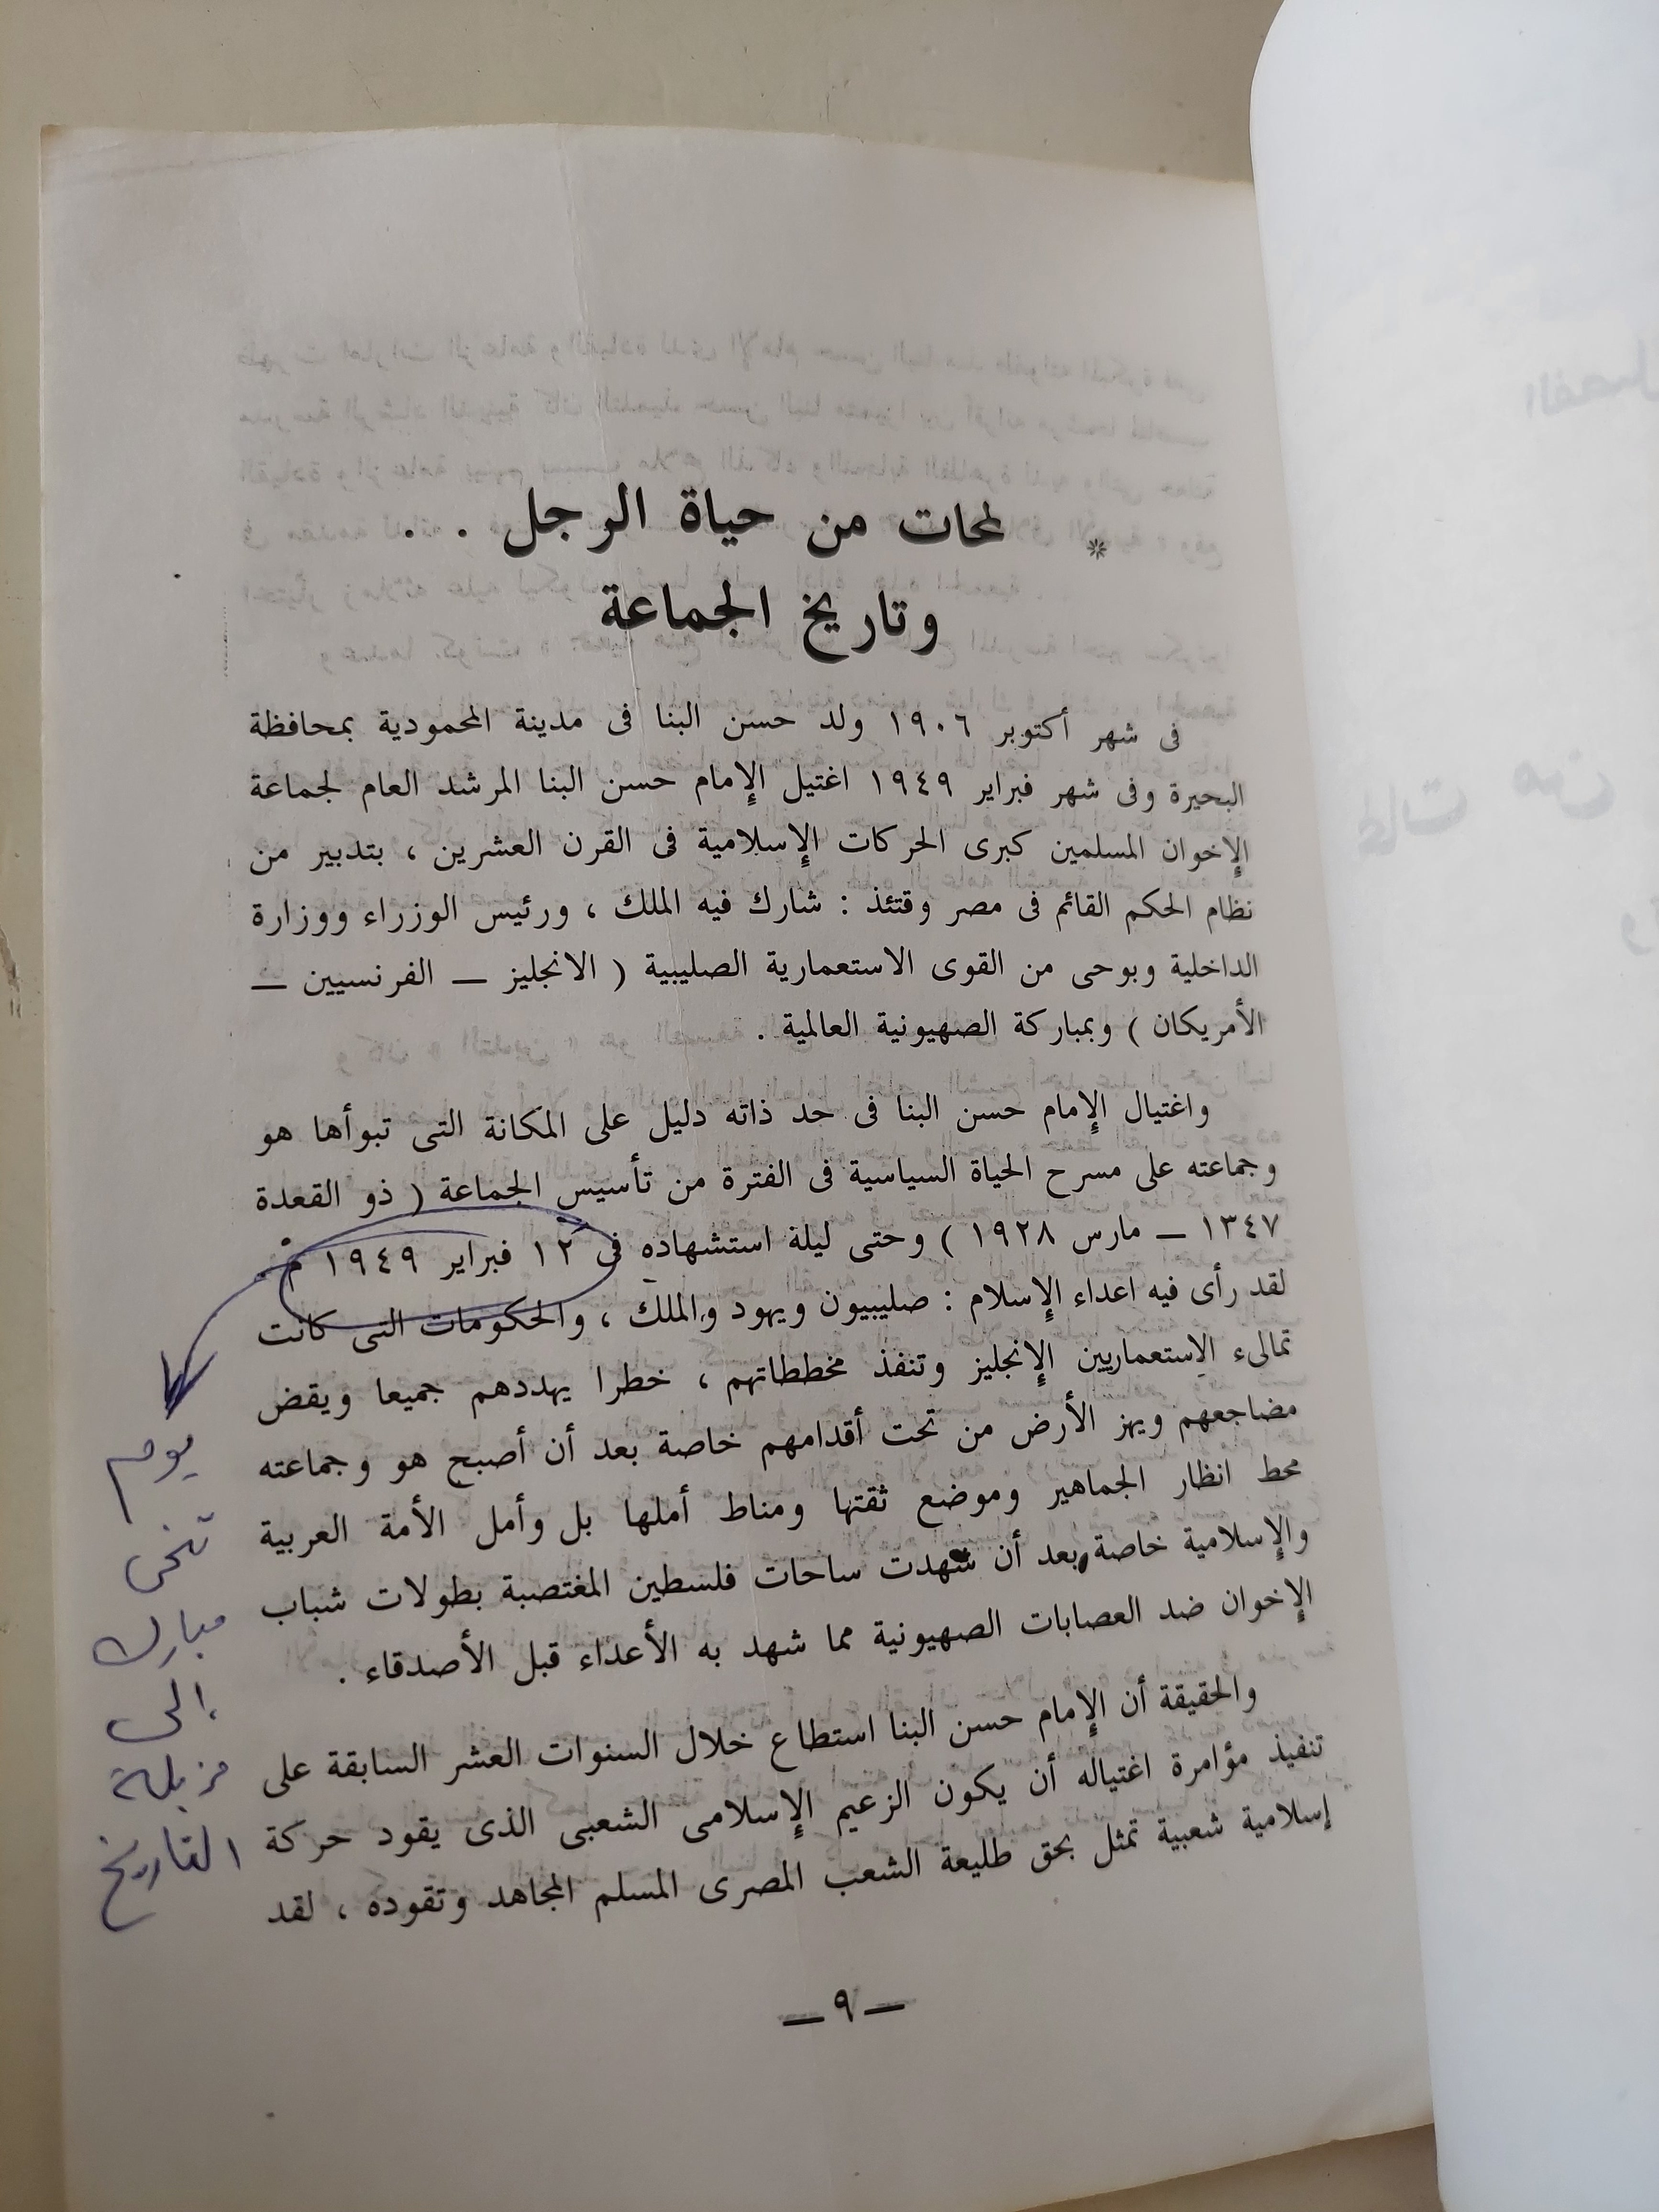 * لمحات من حياة الرجل . .
وتاريخ الجماعة
فى شهر أكتوبر ١٩٠٦ ولد حسن البنا فى مدينة المحمودية بمحافظة
البحيرة وفى شهر فبراير ١٩٤٩ اغتيل الإمام حسن البنا المرشد العام لجماعة
الإخوان المسلمين كبرى الحركات الإسلامية فى القرن العشرين ، بتدبير من
نظام الحكم القائم فى مصر وقتئذ : شارك فيه الملك ، ورئيس الوزراء ووزارة
الداخلية وبوحى من القوى الاستعمارية الصليبية ( الانجليز — الفرنسيين —
الأمريكان ) وبمباركة الصهيونية العالمية .
واغتيال الإمام حسن البنا فى حد ذاته دليل على المكانة التى تبوأها هو
وجماعته على مسرح الحياة السياسية فى الفترة من تأسيس الجماعة ( ذو القعدة
١٣٤٧ — مارس ١٩٢٨ ) وحتى ليلة استشهاده فى ١٢ فبراير ١٩٤٩ م .
لقد رأى فيه اعداء الإسلام : صليبيون ويهود والملك ، والحكومات التى كانت
تمالىء الاستعماريين الإنجليز وتنفذ مخططاتهم ، خطرا يهددهم جميعا ويقض
مضاجعهم ويهز الأرض من تحت أقدامهم خاصة بعد أن أصبح هو وجماعته
محط انظار الجماهير وموضع ثقتها ومناط أملها بل وأمل الأمة العربية
والإسلامية خاصة بعد أن شهدت ساحات فلسطين المغتصبة بطولات شباب
الإخوان ضد العصابات الصهيونية مما شهد به الأعداء قبل الأصدقاء .
والحقيقة أن الإمام حسن البنا استطاع خلال السنوات العشر السابقة على
تنفيذ مؤامرة اغتياله أن يكون الزعيم الإسلامى الشعبى الذى يقود حركة
إسلامية شعبية تمثل بحق طليعة الشعب المصرى المسلم المجاهد وتقوده ، لقد
— ٩ —
يوم
تنحى
مبارك
إلى
مزبلة
التاريخ